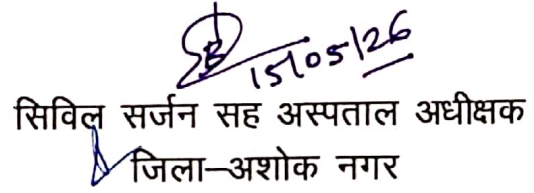 15/05/26
सिविल सर्जन सह अस्पताल अधीक्षक
जिला–अशोक नगर